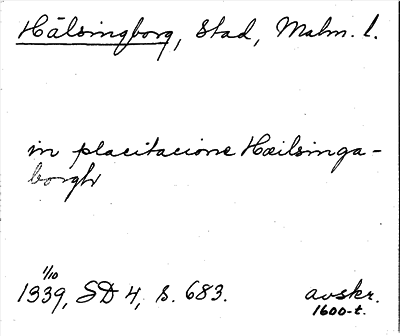 Hälsingborg, Stad, Malm. l.
in placitacione Hæilsinga-
borghr
1/10
1339, SD 4, s. 683.
avskr.
1600-t.